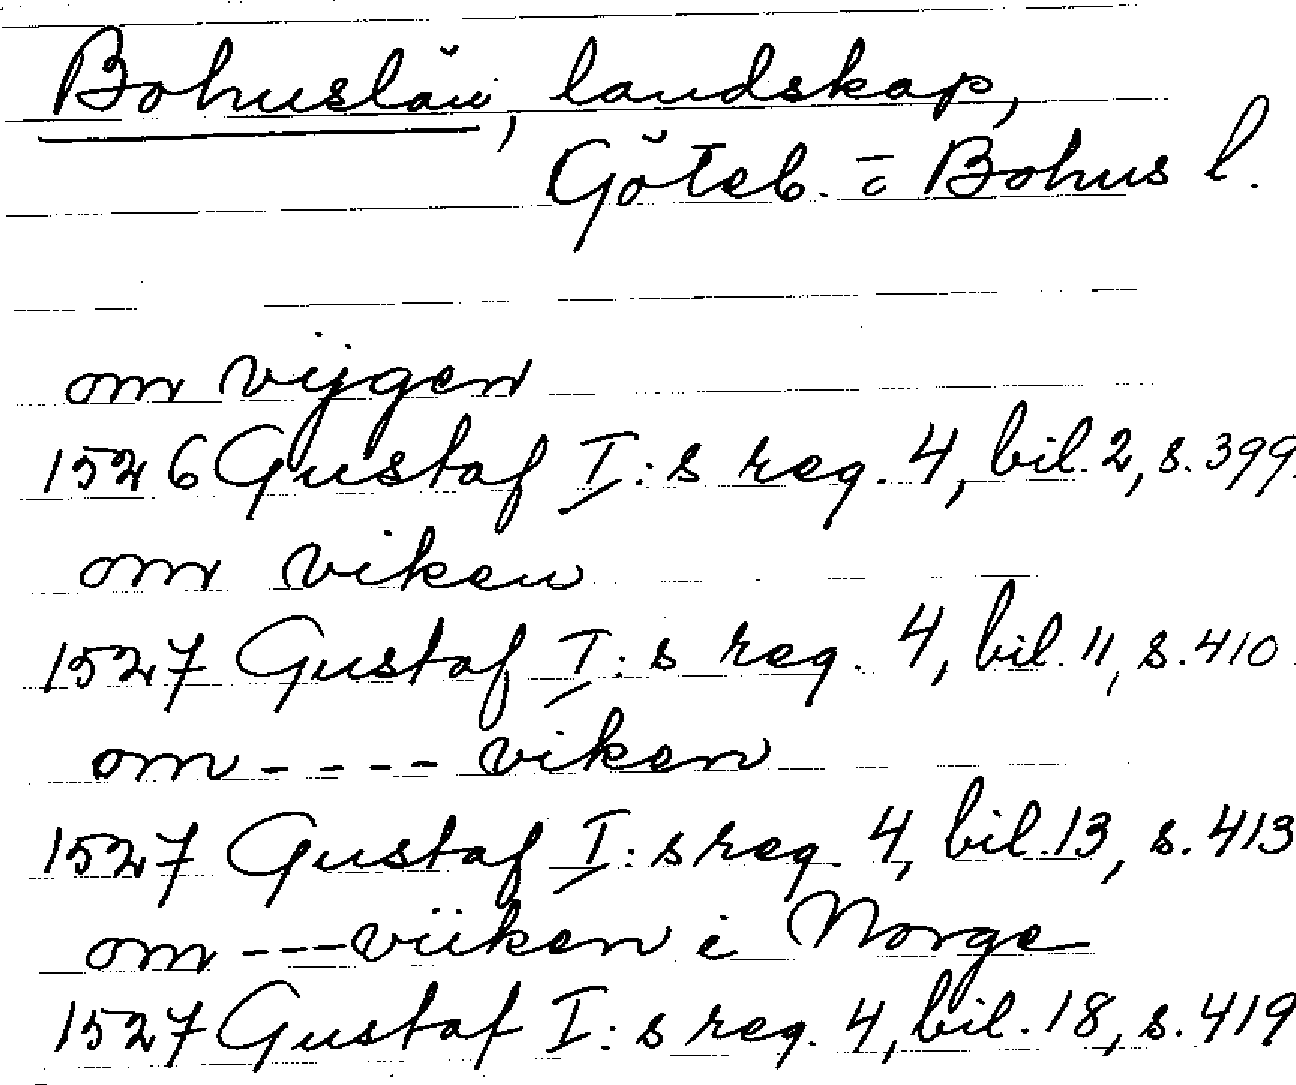 Bohuslän, landskap,
Göteb. o Bohus l.
om vijgen
1526 Gustaf I:s reg. 4, bil. 2, s. 399.
om viken
1527 Gustaf I:s reg. 4, bil. 11, s. 410.
om - - - - viken
1527 Gustaf I:s reg. 4, bil. 13, s. 413
om - - - viiken i Norge
1527 Gustaf I:s reg. 4, bil. 18, s. 419